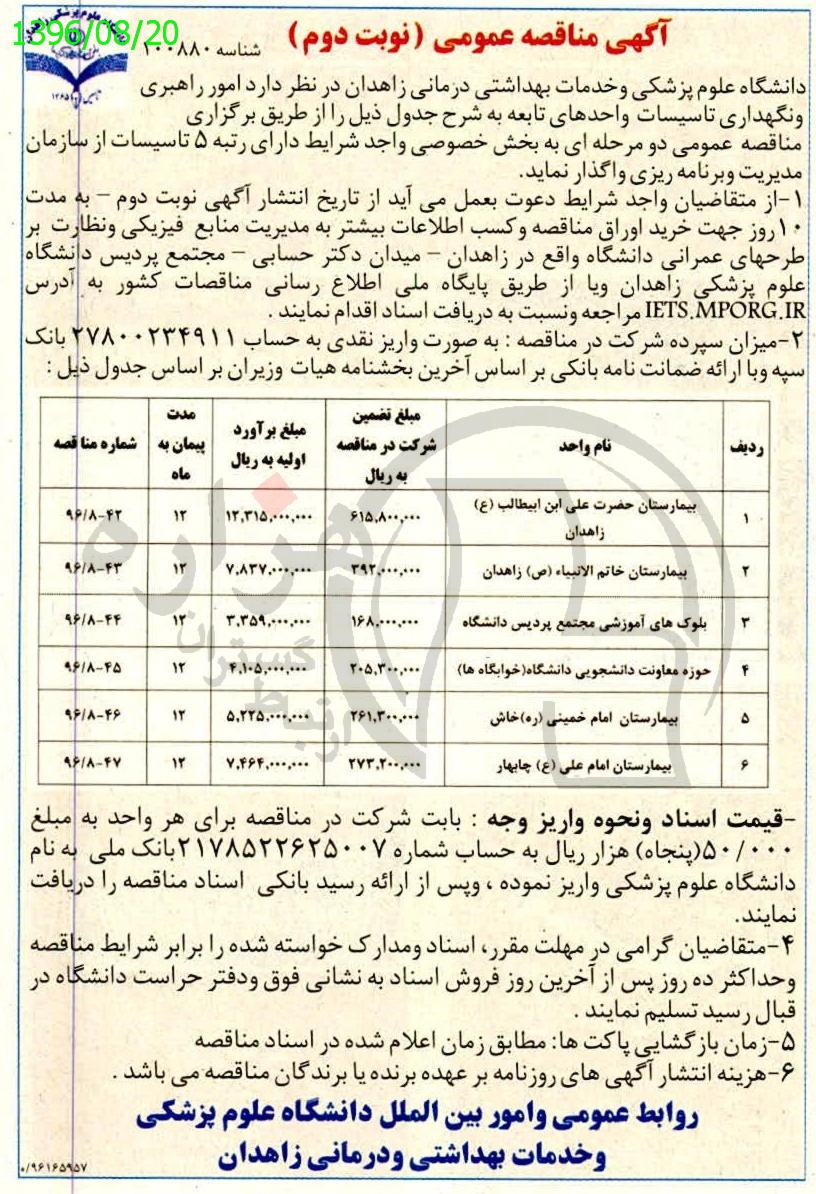 1396/08/20
آگهی مناقصه عمومی (نوبت دوم)
شناسه ۱۰۰۸۸۰
دانشگاه علوم پزشکی وخدمات بهداشتی درمانی زاهدان در نظر دارد امور راهبری
ونگهداری تاسیسات واحدهای تابعه به شرح جدول ذیل را از طریق برگزاری
مناقصه عمومی دو مرحله ای به بخش خصوصی واجد شرایط دارای رتبه ۵ تاسیسات از سازمان
مدیریت وبرنامه ریزی واگذار نماید.
۱-از متقاضیان واجد شرایط دعوت بعمل می آید از تاریخ انتشار آگهی نوبت دوم – به مدت
۱۰روز جهت خرید اوراق مناقصه وکسب اطلاعات بیشتر به مدیریت منابع فیزیکی ونظارت بر
طرحهای عمرانی دانشگاه واقع در زاهدان – میدان دکتر حسابی – مجتمع پردیس دانشگاه
علوم پزشکی زاهدان ویا از طریق پایگاه ملی اطلاع رسانی مناقصات کشور به آدرس
IETS.MPORG.IR مراجعه ونسبت به دریافت اسناد اقدام نمایند .
۲-میزان سپرده شرکت در مناقصه : به صورت واریز نقدی به حساب ۲۷۸۰۰۲۳۴۹۱۱ بانک
سپه وبا ارائه ضمانت نامه بانکی بر اساس آخرین بخشنامه هیات وزیران بر اساس جدول ذیل :
ردیف نام واحد مبلغ تضمین شرکت در مناقصه به ریال مبلغ برآورد اولیه به ریال مدت پیمان به ماه شماره مناقصه
۱ بیمارستان حضرت علی ابن ابیطالب (ع) زاهدان ۶۱۵,۸۰۰,۰۰۰ ۱۲,۳۱۵,۰۰۰,۰۰۰ ۱۲ ۹۶/۸-۴۲
۲ بیمارستان خاتم الانبیاء (ص) زاهدان ۳۹۲,۰۰۰,۰۰۰ ۷,۸۳۷,۰۰۰,۰۰۰ ۱۲ ۹۶/۸-۴۳
۳ بلوک های آموزشی مجتمع پردیس دانشگاه ۱۶۸,۰۰۰,۰۰۰ ۳,۳۵۹,۰۰۰,۰۰۰ ۱۲ ۹۶/۸-۴۴
۴ حوزه معاونت دانشجویی دانشگاه(خوابگاه ها) ۲۰۵,۳۰۰,۰۰۰ ۴,۱۰۵,۰۰۰,۰۰۰ ۱۲ ۹۶/۸-۴۵
۵ بیمارستان امام خمینی (ره)خاش ۲۶۱,۳۰۰,۰۰۰ ۵,۲۲۵,۰۰۰,۰۰۰ ۱۲ ۹۶/۸-۴۶
۶ بیمارستان امام علی (ع) چابهار ۲۷۳,۲۰۰,۰۰۰ ۷,۴۶۴,۰۰۰,۰۰۰ ۱۲ ۹۶/۸-۴۷
هزاره
گستران
ارتباط
-قیمت اسناد ونحوه واریز وجه : بابت شرکت در مناقصه برای هر واحد به مبلغ
۵۰/۰۰۰(پنجاه) هزار ریال به حساب شماره ۲۱۷۸۵۲۲۶۲۵۰۰۷بانک ملی به نام
دانشگاه علوم پزشکی واریز نموده ، وپس از ارائه رسید بانکی اسناد مناقصه را دریافت
نمایند.
۴-متقاضیان گرامی در مهلت مقرر، اسناد ومدارک خواسته شده را برابر شرایط مناقصه
وحداکثر ده روز پس از آخرین روز فروش اسناد به نشانی فوق ودفتر حراست دانشگاه در
قبال رسید تسلیم نمایند .
۵-زمان بازگشایی پاکت ها: مطابق زمان اعلام شده در اسناد مناقصه
۶-هزینه انتشار آگهی های روزنامه بر عهده برنده یا برندگان مناقصه می باشد .
روابط عمومی وامور بین الملل دانشگاه علوم پزشکی
وخدمات بهداشتی ودرمانی زاهدان
۰/۹۶۱۶۵۹۵۷